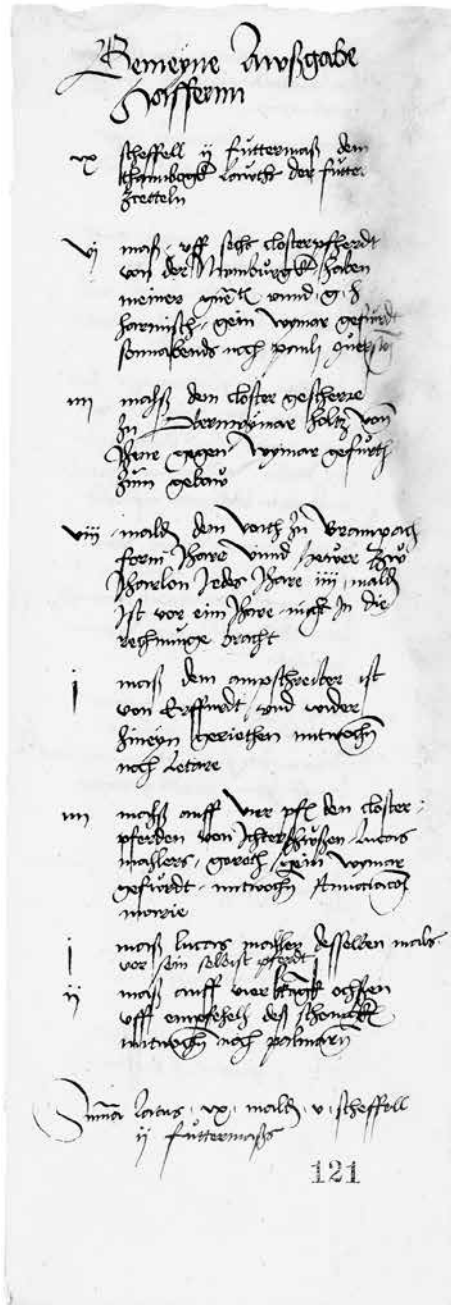 Gemeyne Awßgabe
Haffernn
vx scheffell ij futtermaß dem
lawth der futter
zcetteln
vj maß vff sechs closterpfherdt
von der Numburgk haben
meiner vnnd g h
harnisch gein wymar gefurdt
sonnabends nach pauli
iiij mahß dem closter geschirre
zu Oberweymar holtz von
Jhene gegen wymar gefurth
zum gebaw
viij mald dem voith zu
form Jhare vnnd hewer zw
Jharlon Jedes Jhare iiij mald
Ist vor ein Jhare nicht In die
rechnunge bracht
j maß dem ampschreiber ist
von Erffurdt vnd wider
hineyn geriethen mitwochn
noch Letare
iiij mahß auff vier pf den closter
pferden von Ichterßhußen Lucas
mahlers gereth gein wymar
gefurdt mitwochn Anuciacois
marie
j maß lucas mahlern desselben mals
vor sein selbist pferdt
ij maß auff vier ochsen
vff empfehelh deß schencken
mitwochn nach palmarum
Suma latus vx mald v scheffell
ij futtermaß
121